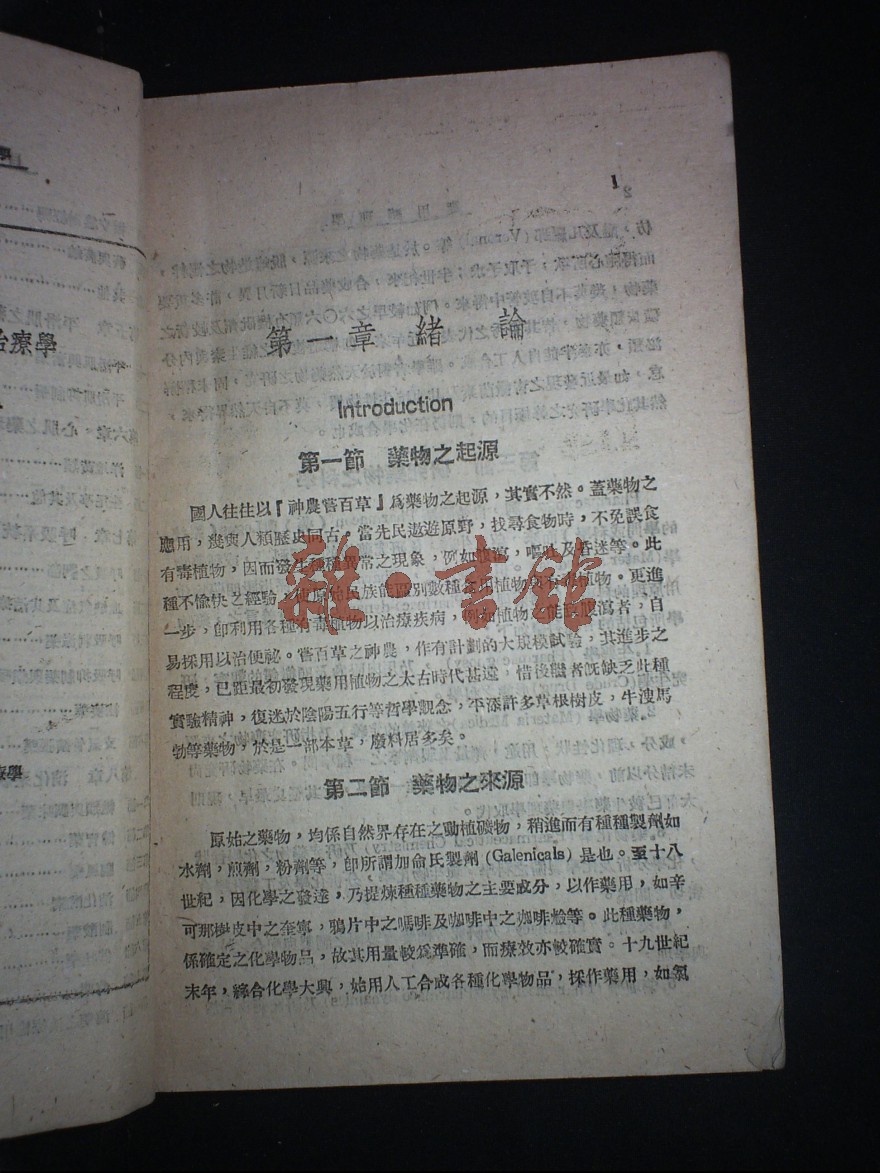 治療學
1
第一章 緒論
Introduction
第一節 藥物之起源
國人往往以『神農嘗百草』爲藥物之起源，其實不然。蓋藥物之
應用，幾與人類歷史同古。當先民遨遊原野，找尋食物時，不免誤食
有毒植物，因而發生種種異常之現象，例如腹瀉，嘔吐及昏迷等。此
種不愉快之經驗，使原始民族能區別數種食用植物與有毒植物。更進
一步，卽利用各種有毒植物以治療疾病，例如植物之能致腹瀉者，自
易採用以治便祕。嘗百草之神農，作有計劃的大規模試驗，其進步之
程度，已距最初發現藥用植物之太古時代甚遠，惜後繼者旣缺乏此種
實驗精神，復迷於陰陽五行等哲學觀念，平添許多草根樹皮，牛溲馬
勃等藥物，於是一部本草，廢料居多矣。
第二節 藥物之來源
原始之藥物，均係自然界存在之動植礦物，稍進而有種種製劑如
水劑，煎劑，粉劑等，卽所謂加侖氏製劑 (Galenicals) 是也。至十八
世紀，因化學之發達，乃提煉種種藥物之主要成分，以作藥用，如辛
可那樹皮中之奎寧，鴉片中之嗎啡及咖啡中之咖啡鹼等。此種藥物，
係確定之化學物品，故其用量較爲準確，而療效亦較確實。十九世紀
末年，綜合化學大興，始用人工合成各種化學物品，採作藥用，如氯
雜·書館